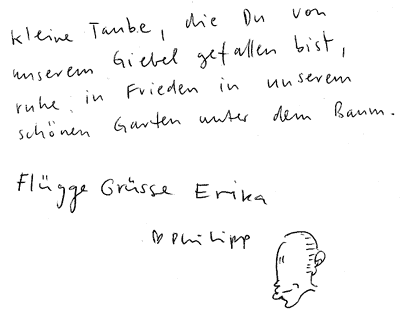 kleine Taube, die Du von
unserem Giebel gefallen bist,
ruhe in Frieden in unserem
schönen Garten unter dem Baum.
Flügge Grüsse Erika
♡ Philipp